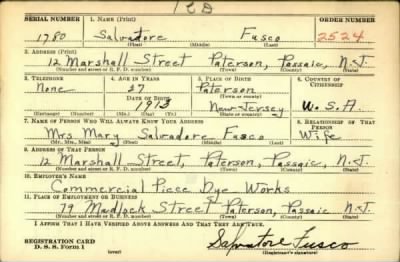 128
SERIAL NUMBER 1. NAME (Print) ORDER NUMBER
1780 Salvatore Fusco 2524
(First) (Middle) (Last)
2. ADDRESS (Print)
12 Marshall Street Paterson, Passaic, N.J.
(Number and street or R. F. D. number) (Town) (County) (State)
3. TELEPHONE 4. AGE IN YEARS 5. PLACE OF BIRTH 6. COUNTRY OF CITIZENSHIP
None 27 Paterson
(Town or county)
DATE OF BIRTH
1913 New Jersey U.S.A
(Exchange) (Number) (Mo.) (Day) (Yr.) (State or country)
7. NAME OF PERSON WHO WILL ALWAYS KNOW YOUR ADDRESS 8. RELATIONSHIP OF THAT PERSON
Mrs Mary Salvadore Fusco Wife
(Mr., Mrs., Miss) (First) (Middle) (Last)
9. ADDRESS OF THAT PERSON
12 Marshall Street, Paterson, Passaic, N.J.
(Number and street or R. F. D. number) (Town) (County) (State)
10. EMPLOYER'S NAME
Commercial Piece Dye Works
11. PLACE OF EMPLOYMENT OR BUSINESS
79 Madlock Street Paterson, Passaic N.J.
(Number and street or R. F. D. number) (Town) (County) (State)
I AFFIRM THAT I HAVE VERIFIED ABOVE ANSWERS AND THAT THEY ARE TRUE.
REGISTRATION CARD
D. S. S. Form 1 (over) Salvatore Fusco
(Registrant's signature)